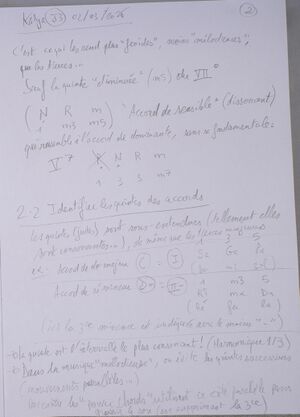 Katja 33 02/03/2026 2
C'est ce qui les rend plus "froides", moins "mélodieuses",
que les tierces...
Sauf la quinte "diminuée" (m5) du VII°
( N R m "Accord de sensible" (dissonant)
1 m3 m5 )
qui ressemble à l'accord de dominante, sans sa fondamentale:
V7 N R m
1 3 5 m7
2.2 Identifier les quintes des accords
Les quintes (justes) sont sous-entendues (tellement elles
sont consonantes...), de même que les tierces majeures
ex: Accord de do majeur C = I 1 3 5
Accord de ré mineur = II- 1 m3 5
(ici la 3ce mineure est indiquée avec le moins "-")
La quinte est l'intervalle le plus consonant! (Harmonique 1/3)
Dans la musique "mélodieuse", on évite les quintes successives
(mouvements parallèles...)
les "power chords" utilisent ce côté parallèle pour